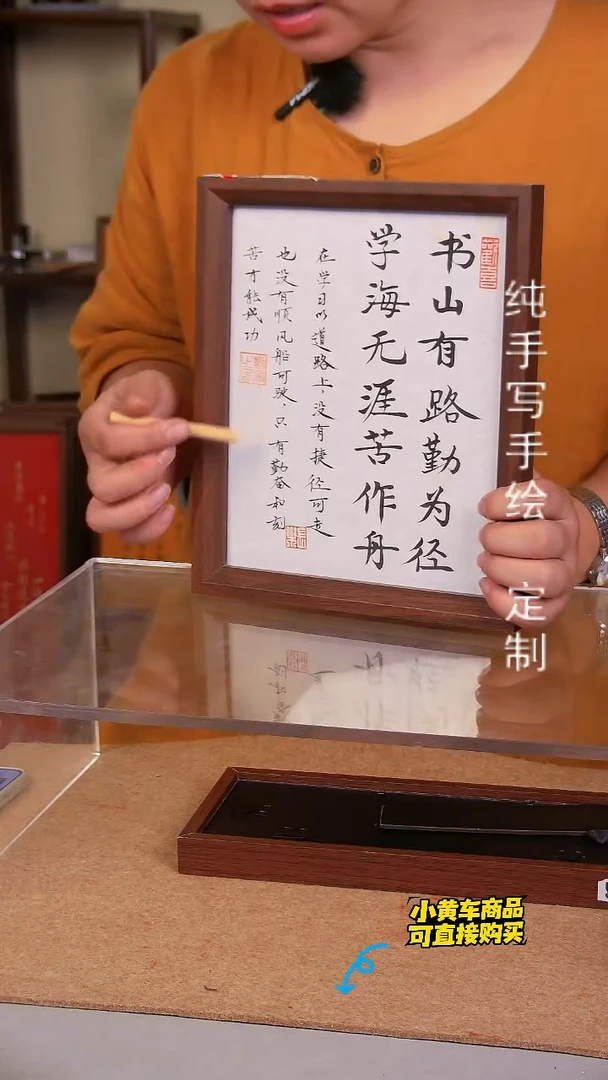 书山有路勤为径
学海无涯苦作舟
在学习的道路上，没有捷径可走
也没有顺风船可驶，只有勤奋和刻
苦才能成功
纯手写手绘 定制
小黄车商品
可直接购买